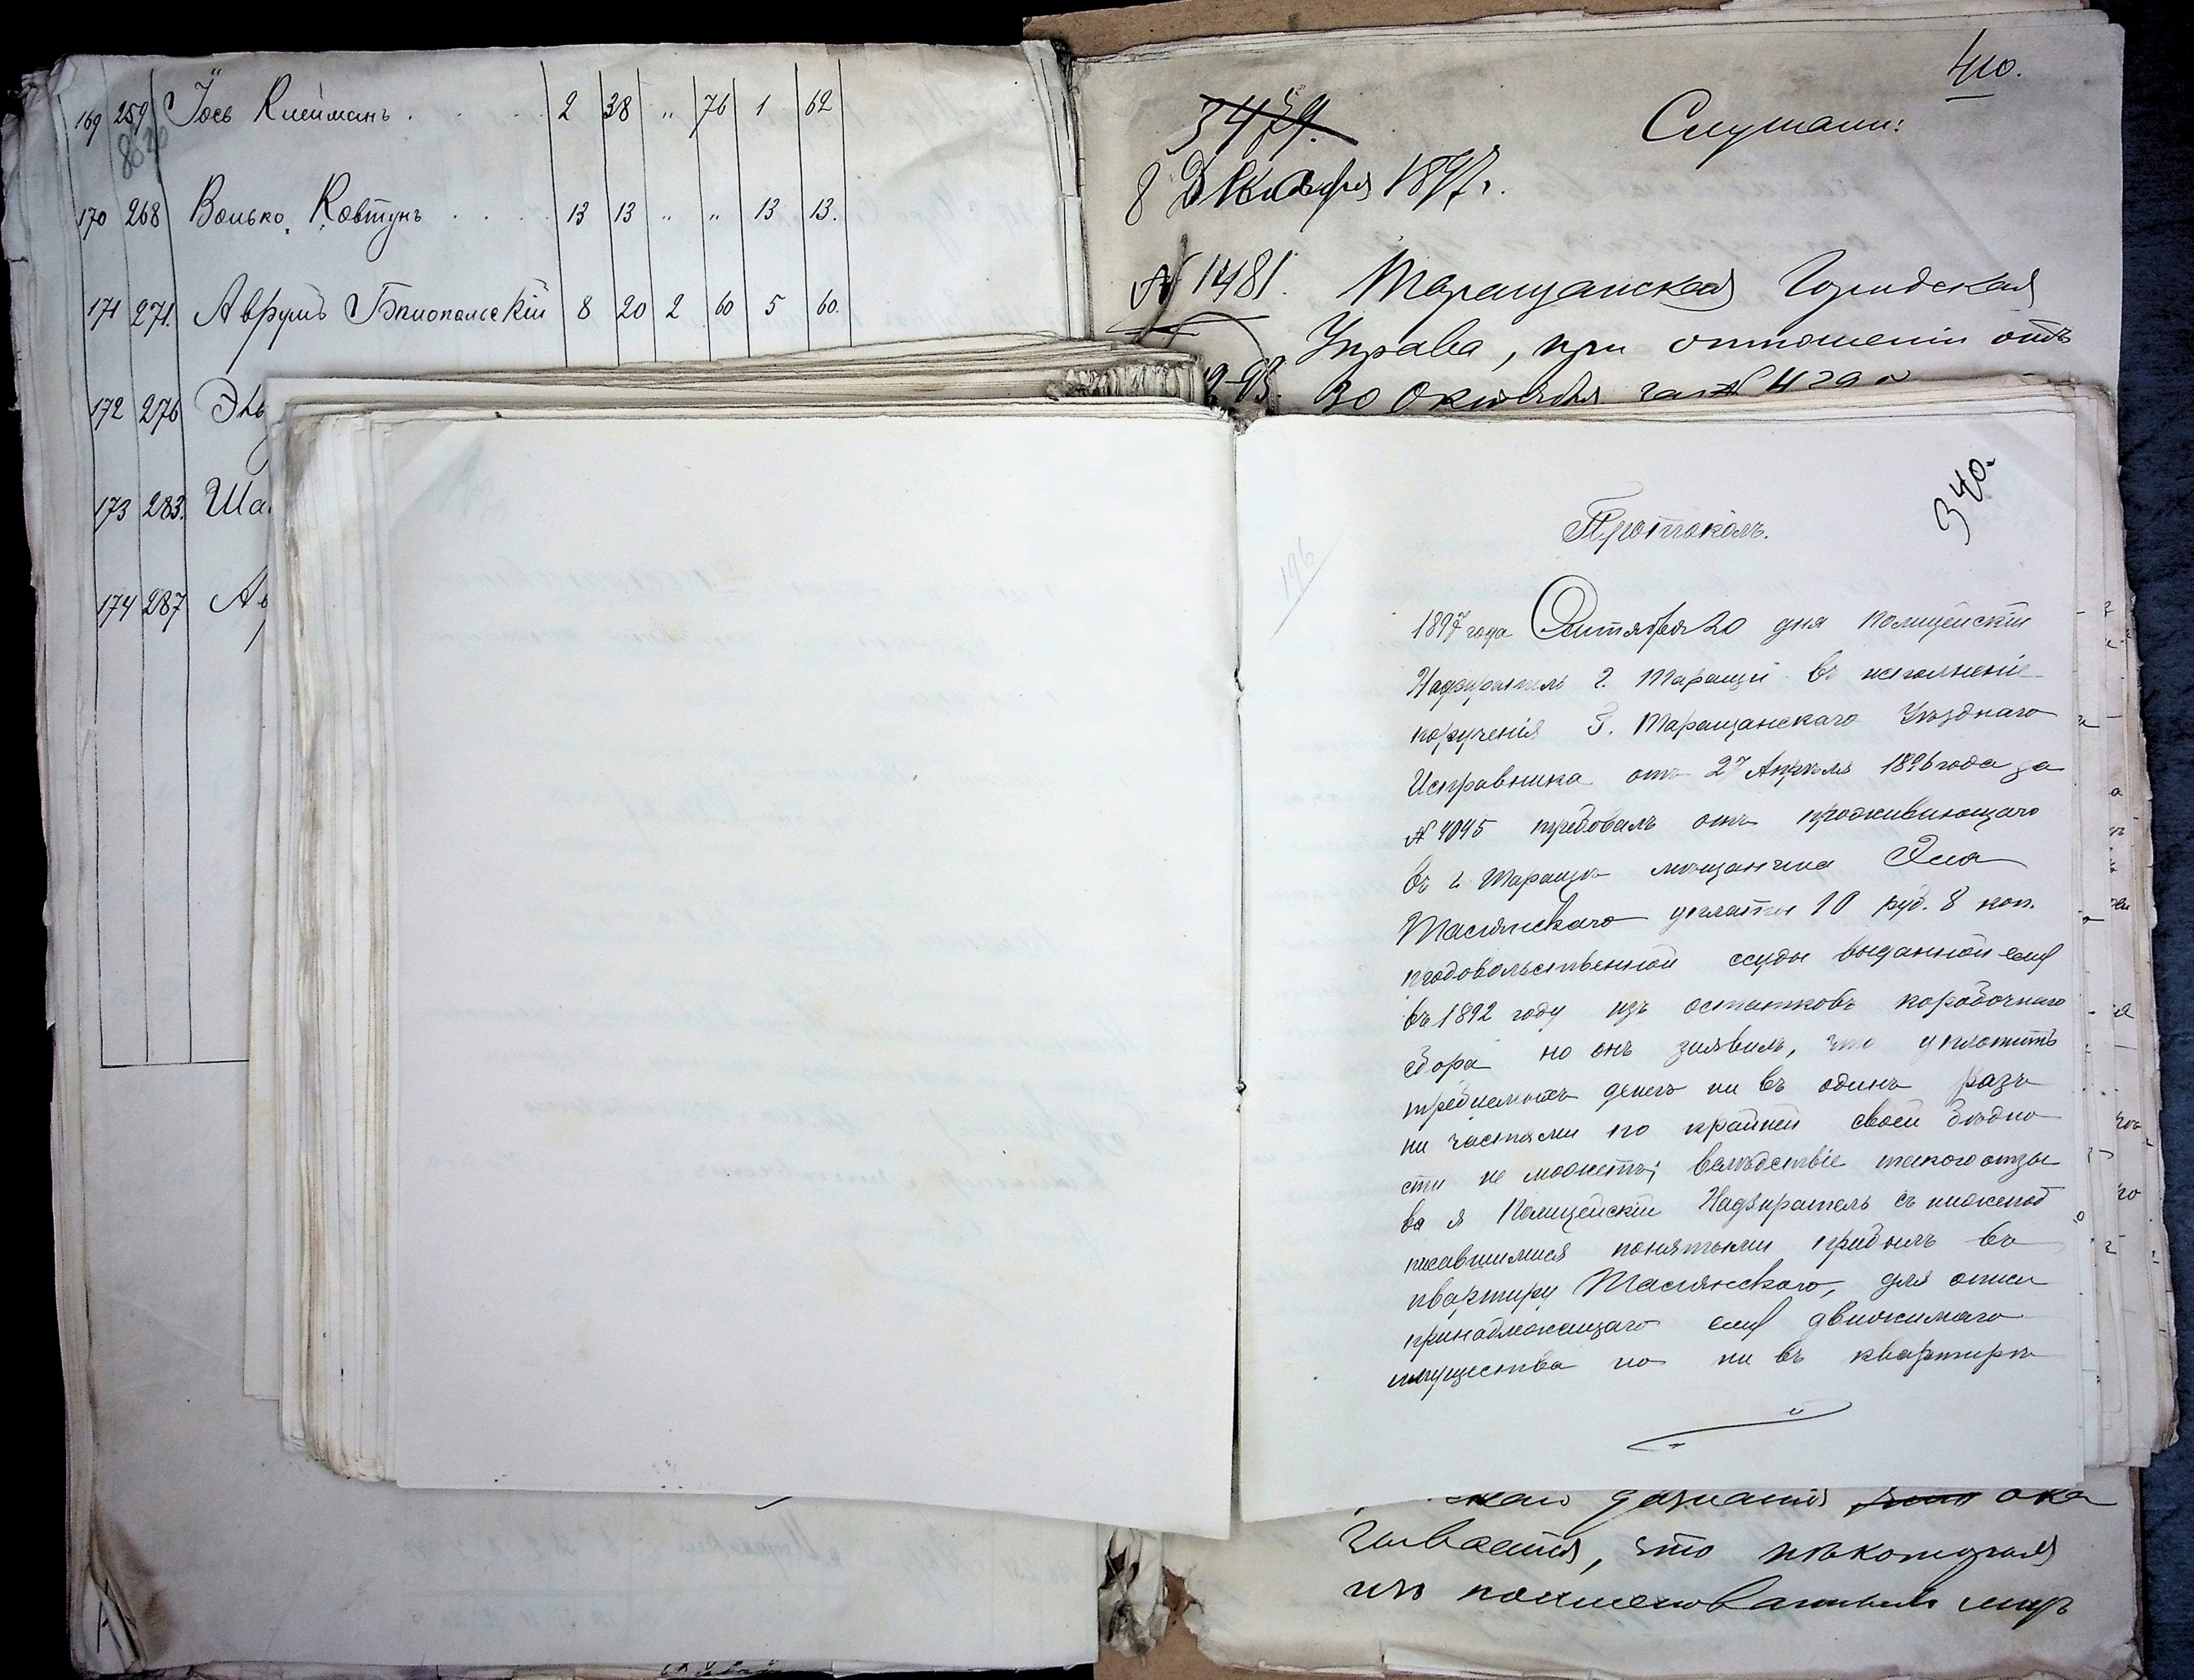 169 259 Іось Клейманъ . . . 2 38 „ 76 1 62
170 268 Волько Ковтунъ . . . 13 13 „ „ 13 13.
171 271. Аврумъ Бялопольскій 8 20 2 60 5 60.
172 276
173 283.
174 287
410.
3479.
Слушали:
8 Декабря 1897 г.
№ 1481. Таращанская Городская
Управа, при отношеніи отъ
30 Октября за №
340.
196
Протоколъ.
1897 года Октября 20 дня Полицейскій
Надзиратель г. Таращи въ исполненіе
порученія Г. Таращанскаго Уѣзднаго
Исправника отъ 27 Апрѣля 1896 года за
№ 4045 требовалъ отъ проживающаго
въ г. Таращѣ мѣщанина
Маслянскаго уплаты 10 руб. 8 коп.
продовольственной ссуды выданной ему
въ 1892 году изъ остатковъ коробочнаго
сбора но онъ заявилъ, что уплатить
требуемыхъ денегъ ни въ одинъ разъ
ни частями по крайней своей бѣдно
сти не можетъ; вслѣдствіе такого отзы
ва я Полицейскій Надзиратель съ нижепод
писавшимися понятыми прибылъ въ
квартиру Маслянскаго, для описи
принадлежащаго ему движимаго
имущества но ни въ квартирѣ
дознанія ока
зывается, что нѣкоторыя
изъ поименованныхъ